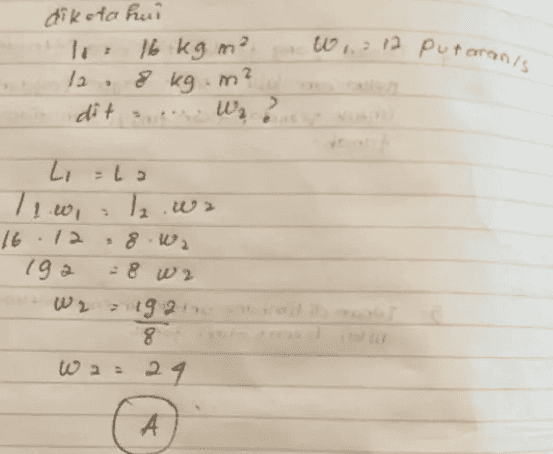 diketahui
I₁ = 16 kg m² ω₁ = 12 putaran/s
I₂ = 8 kg . m²
dit = .... ω₂ ?
L₁ = L₂
I₁ . ω₁ = I₂ . ω₂
16 . 12 = 8 . ω₂
192 = 8 ω₂
ω₂ = 192
8
ω₂ = 24
A